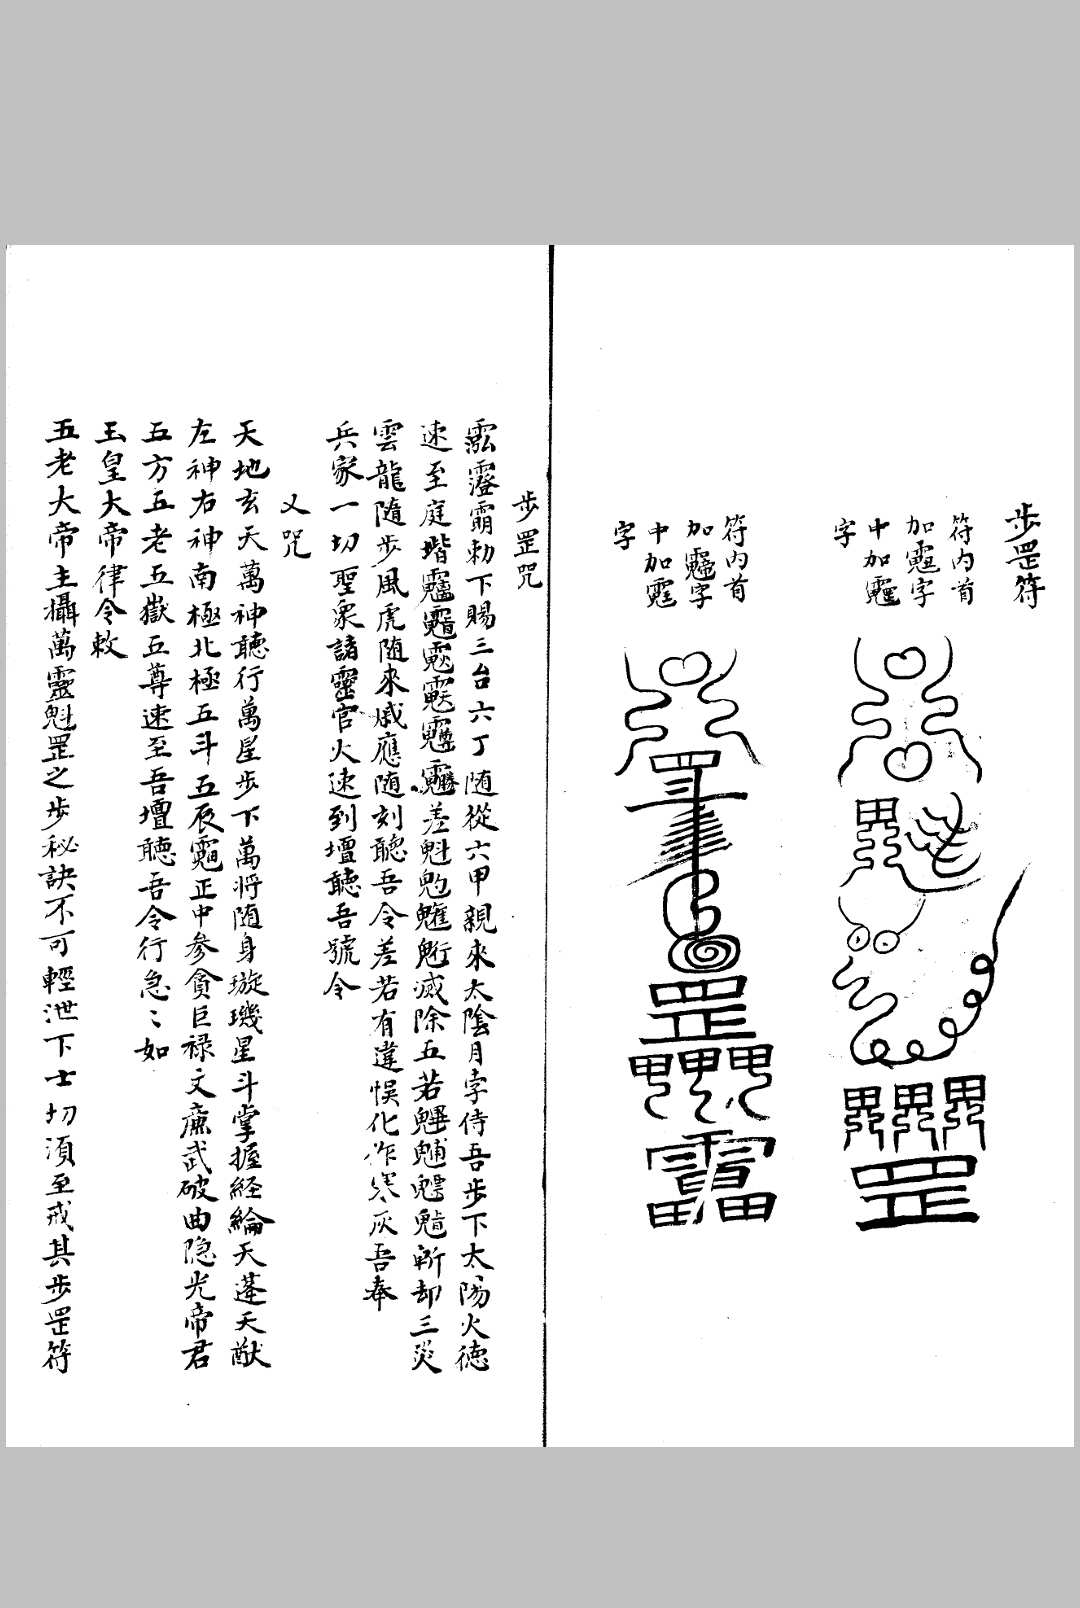 步罡符
符内首
加䨺字
中加
字
符内首
加字
中加
字
步罡咒
敕下賜三台六丁随從六甲親來太陰月孛侍吾步下太陽火德
速至庭堦差魁魓滅除五若斬却三災
雲龍隨步風虎随來感應随刻聽吾令差若有違悞化作寒灰吾奉
兵家一切聖衆諸靈官火速到壇聽吾號令
又咒
天地玄天萬神聽行萬星步下萬將随身璇璣星斗掌握經綸天蓬天猷
左神右神南極北極五斗五辰正中參貪巨禄文㢘武破曲隐光帝君
五方五老五嶽五尊速至吾壇聽吾令行急〻如
玉皇大帝律令敕
五老大帝主攝萬靈魁罡之步秘訣不可輕泄下士切須至戒其步罡符